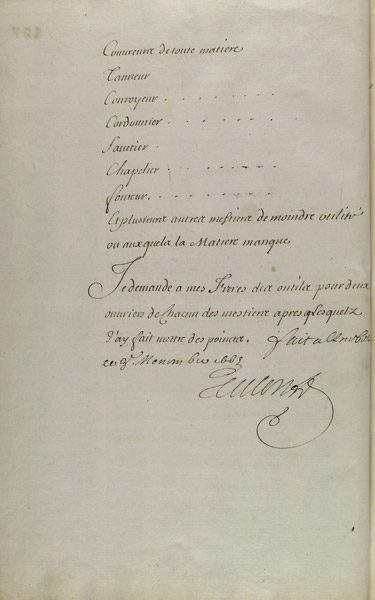 Couvreurs de toute matiere
Tanneur
Couroyeur . . . . . . . .
Cordonnier . . . . . . .
Sauetier .
Chapelier . . . . . . .
foureur . . . . . . . .
Et plusieurs autres mestiers de moindre utilité
ou auxquels la Matiere manque
Je demande a mes Freres des outils pour deux
ouuriers de Chacun des mestiers apres lesquelz
J'ay fait mettre des points. fait a
ce 9e Nouembre 166